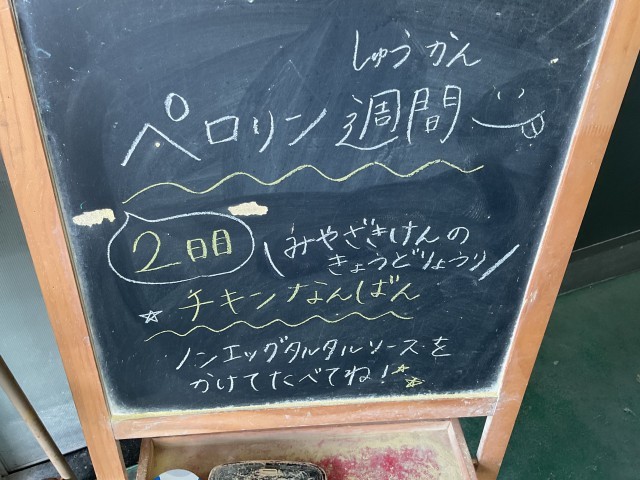 しゅうかん
ペロリン週間
2日目
みやざきけんの
きょうどりょうり
☆チキンなんばん
ノンエッグタルタルソースを
かけてたべてね!